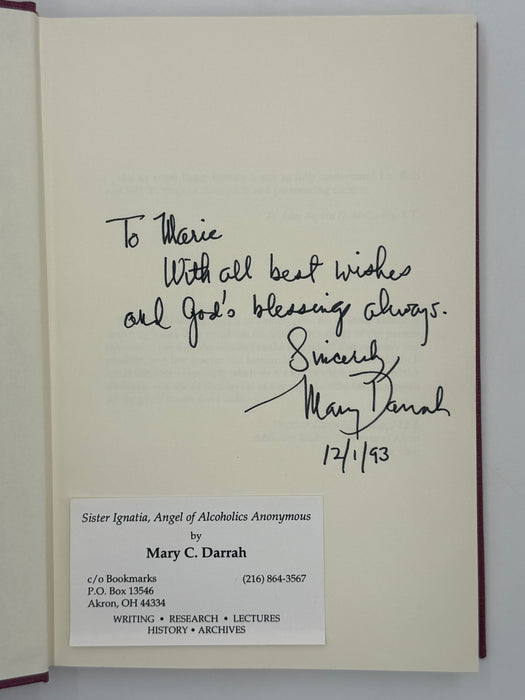 To Marie
With all best wishes
and God's blessings always.
Sincerely,
Mary Darrah
12/1/93
Sister Ignatia, Angel of Alcoholics Anonymous
by
Mary C. Darrah
c/o Bookmarks (216) 864-3567
P.O. Box 13546
Akron, OH 44334
WRITING • RESEARCH • LECTURES
HISTORY • ARCHIVES